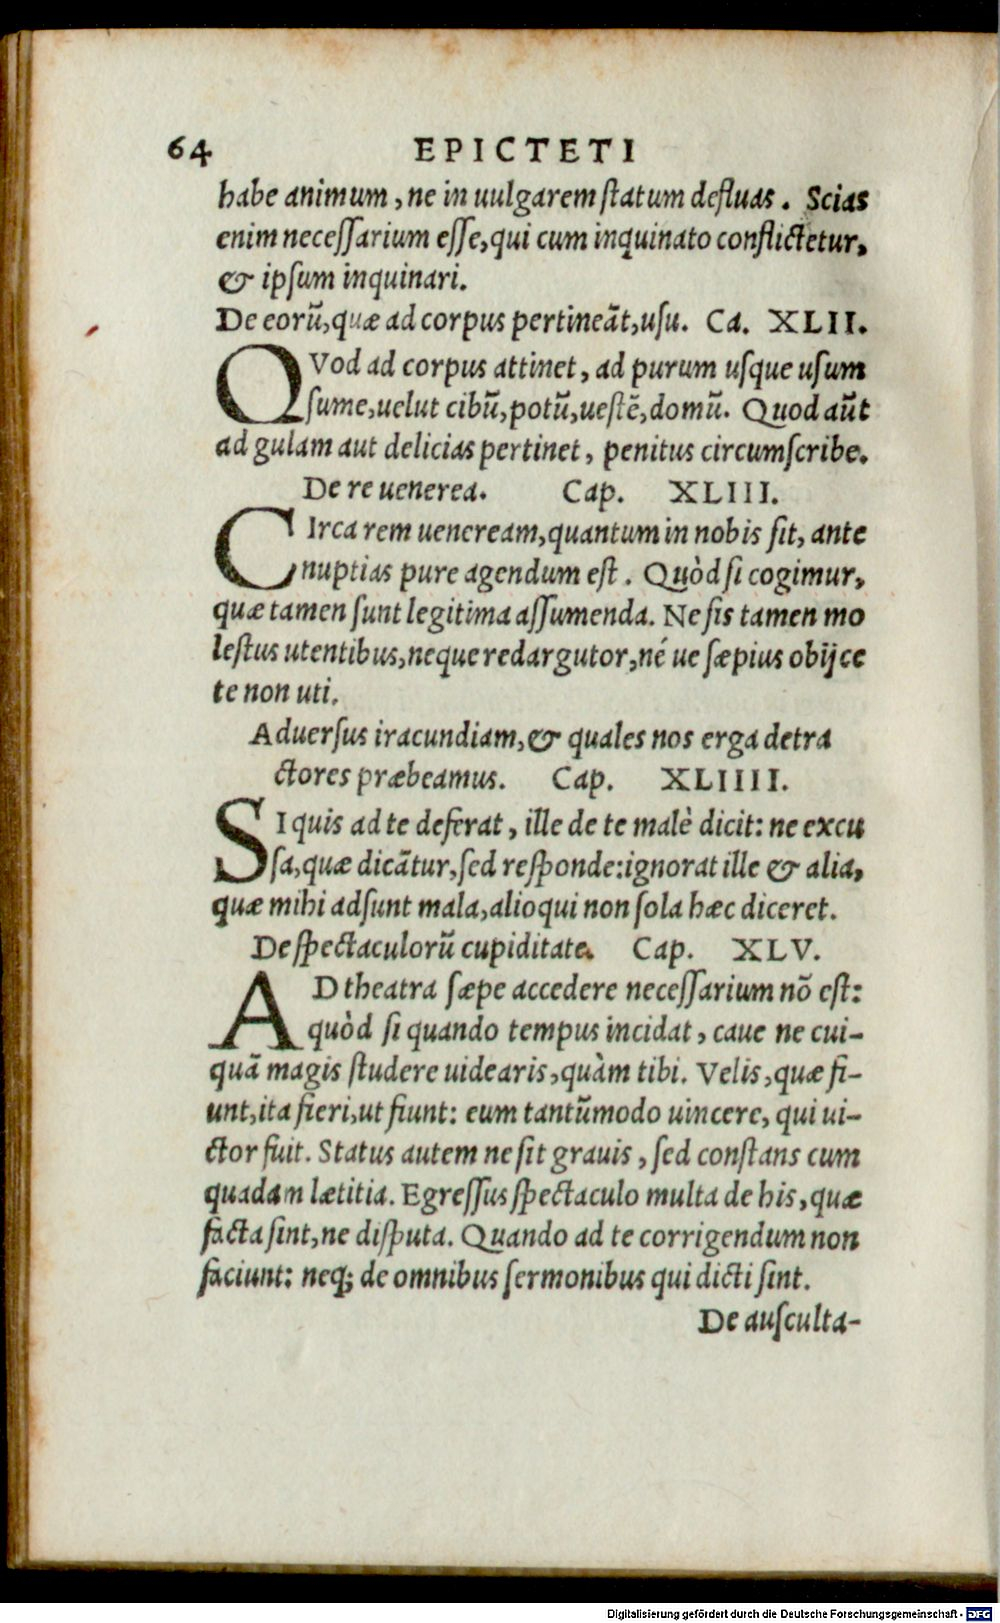 64 EPICTETI
habe animum, ne in uulgarem ſtatum defluas. Scias
enim neceſſarium eſſe, qui cum inquinato conflictetur,
& ipſum inquinari.
De eorũ, quæ ad corpus pertineãt, uſu. Ca. XLII.
QVod ad corpus attinet, ad purum uſque uſum
ſume, uelut cibũ, potũ, ueſtẽ, domũ. Quod aũt
ad gulam aut delicias pertinet, penitus circumſcribe.
De re uenerea. Cap. XLIII.
CIrca rem uenereram, quantum in nobis ſit, ante
nuptias pure agendum eſt. Quòd ſi cogimur,
quæ tamen ſunt legitima aſſumenda. Ne ſis tamen mo
leſtus utentibus, neque redargutor, né ue ſæpius obijce
te non uti.
Aduerſus iracundiam, & quales nos erga detra
ctores præbeamus. Cap. XLIIII.
SI quis ad te deferat, ille de te malè dicit: ne excu
ſa, quæ dicãtur, ſed reſponde: ignorat ille & alia,
quæ mihi adſunt mala, alioqui non ſola hæc diceret.
De ſpectaculorũ cupiditate. Cap. XLV.
AD theatra ſæpe accedere neceſſarium nõ eſt:
quòd ſi quando tempus incidat, caue ne cui-
quã magis ſtudere uidearis, quàm tibi. Velis, quæ fi-
unt, ita fieri, ut fiunt: eum tantũmodo uincere, qui ui-
ctor fuit. Status autem ne ſit grauis, ſed conſtans cum
quadam lætitia. Egreſſus ſpectaculo multa de his, quæ
facta ſint, ne diſputa. Quando ad te corrigendum non
faciunt: neq; de omnibus ſermonibus qui dicti ſint.
De auſculta-
Digitalisierung gefördert durch die Deutsche Forschungsgemeinschaft - DFG